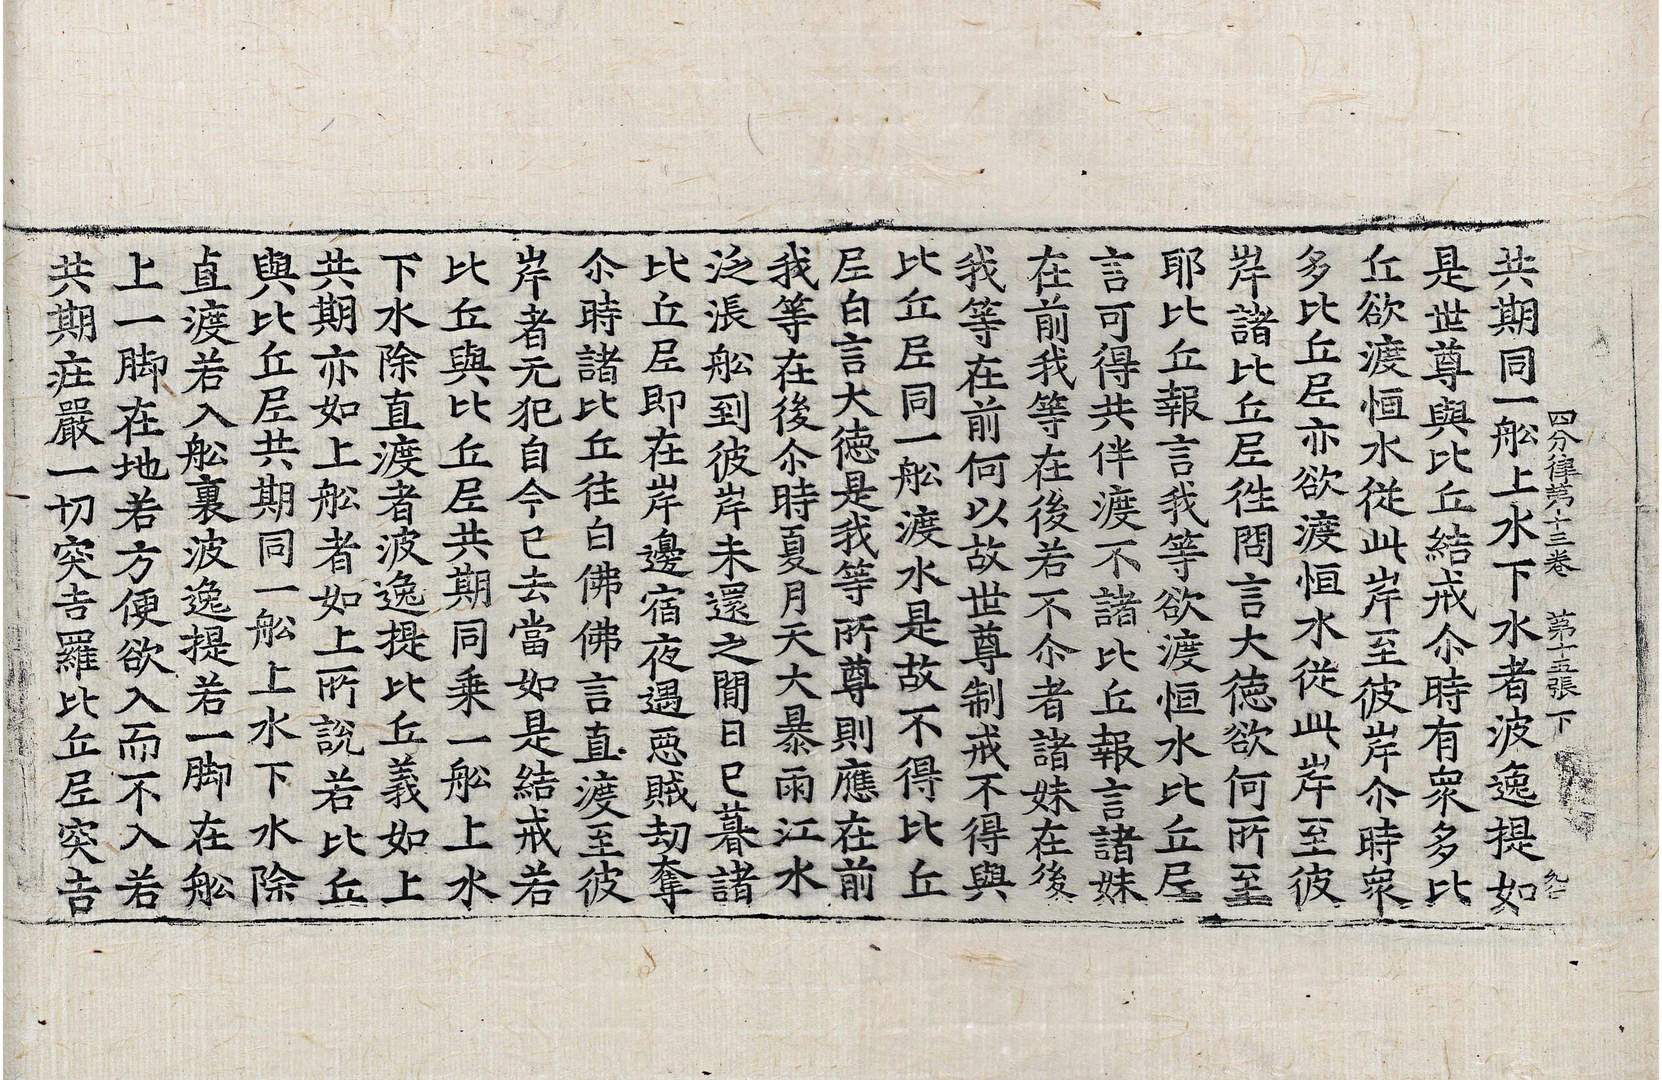 四分律第十三卷 第十五張 下
共期同一舩上水下水者波逸提如
是世尊與比丘結戒尒時有衆多比
丘欲渡恒水從此岸至彼岸尒時衆
多比丘尼亦欲渡恒水從此岸至彼
岸諸比丘尼徃問言大徳欲何所至
耶比丘報言我等欲渡恒水比丘尼
言可得共伴渡不諸比丘報言諸妹
在前我等在後若不尒者諸妹在後
我等在前何以故世尊制戒不得與
比丘尼同一舩渡水是故不得比丘
尼白言大德是我等所尊則應在前
我等在後尒時夏月天大暴雨江水
泛漲舩到彼岸未還之間日已暮諸
比丘尼即在岸邊宿夜遇惡賊劫奪
尒時諸比丘往白佛佛言直渡至彼
岸者无犯自今已去當如是結戒若
比丘與比丘尼共期同乘一舩上水
下水除直渡者波逸提比丘義如上
共期亦如上舩者如上所說若比丘
與比丘尼共期同一舩上水下水除
直渡若入舩裏波逸提若一脚在舩
上一脚在地若方便欲入而不入若
共期莊嚴一切突吉羅比丘尼突吉